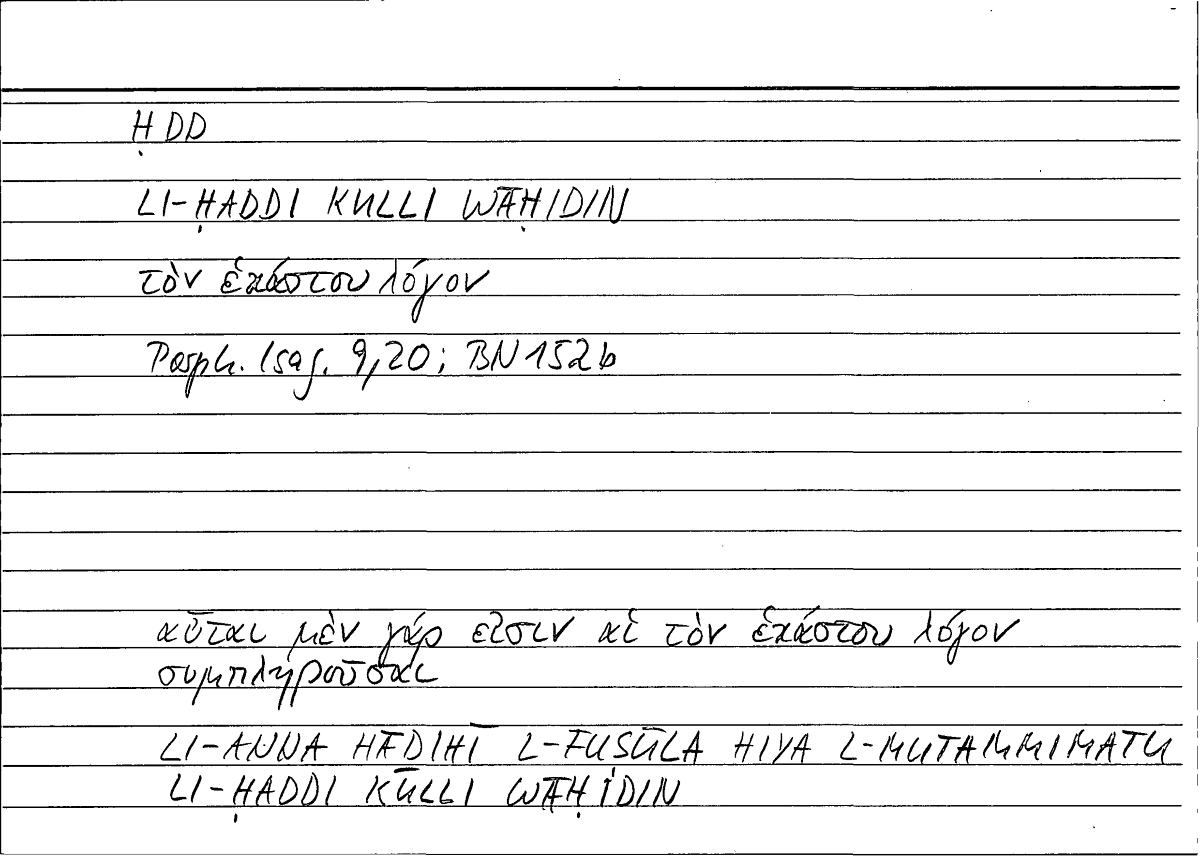 ḤDD
LI-ḤADDI KULLI WĀḤIDIN
τὸν ἑκάστου λόγον
Porph. Isag. 9,20; BN 152b
αὗται μὲν γάρ εἰσιν αἱ τὸν ἑκάστου λόγον
συμπληροῦσαι
LI-ANNA HĀDIHĪ L-FUSŪLA HIYA L-MUTAMMIMATU
LI-ḤADDI KULLI WĀḤIDIN